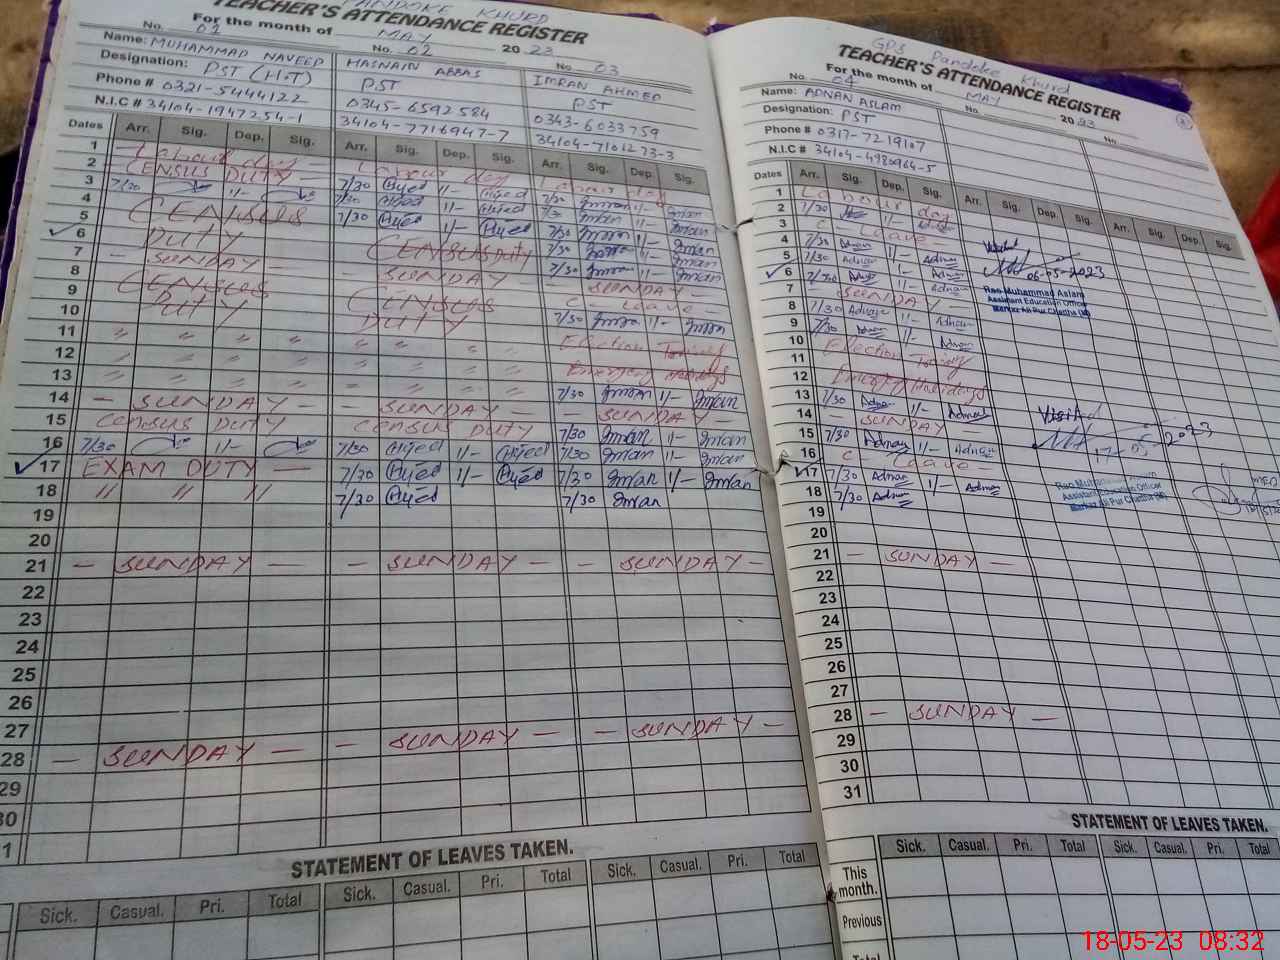 PANDOKE KHURD
TEACHER'S ATTENDANCE REGISTER
For the month of MAY 2023
No. 01 No. 02 No. 03
Name: MUHAMMAD NAVEED HASNAIN ABBAS IMRAN AHMED
Designation: PST (H.T) PST PST
Phone # 0321-5444122 0345-6592584 0343-6033759
N.I.C # 34104-1947254-1 34104-7716947-7 34104-7101273-3
Dates Arr. Sig. Dep. Sig. Arr. Sig. Dep. Sig. Arr. Sig. Dep. Sig.
1 Labour day Labour day Labour day
2 CENSUS DUTY 7/30 1/- 7/30 Imran 1/- Imran
3 7/30 1/- 7/30 1/- 7/30 Imran 1/- Imran
4 CENSUS 7/30 1/- 7/30 Imran 1/- Imran
5 DUTY CENSUS Duty 7/30 Imran 1/- Imran
6
7 - SUNDAY - SUNDAY - SUNDAY -
8 CENSUS CENSUS C - Leave -
9 DUTY DUTY 7/30 Imran 1/- Imran
10 Election
11 " " " " " " " "
12 " " " " " " " "
13 7/30 Imran 1/- Imran
14 - SUNDAY - - SUNDAY - - SUNDAY -
15 Census DUTY CENSUS DUTY 7/30 Imran 1/- Imran
16 7/30 1/- 7/30 1/- 7/30 Imran 1/- Imran
17 EXAM DUTY - 7/30 1/- 7/30 Imran 1/- Imran
18 " " " 7/30 7/30 Imran
19
20
21 - SUNDAY - - SUNDAY - - SUNDAY -
22
23
24
25
26
27
28 - SUNDAY - - SUNDAY - - SUNDAY -
29
30
1
STATEMENT OF LEAVES TAKEN.
Sick. Casual. Pri. Total Sick. Casual. Pri. Total Sick. Casual. Pri. Total
GPS Pandoke Khurd
TEACHER'S ATTENDANCE REGISTER
For the month of MAY 2023
No. 04 No. No.
Name: ADNAN ASLAM
Designation: PST
Phone # 0317-7219107
N.I.C # 34104-4980964-5
Dates Arr. Sig. Dep. Sig. Arr. Sig. Dep. Sig. Arr. Sig. Dep. Sig.
1 Labour day
2 7/30 1/- Adnan
3 C - Leave -
4 7/30 Adnan 1/- Adnan
5 7/30 Adnan 1/- Adnan
6 7/30 Adnan 1/- Adnan
06-05-2023
Rao Muhammad Aslam
Assistant Education Officer
Markaz Ali Pur Chatha (M)
7 - SUNDAY -
8 7/30 Adnan 1/- Adnan
9 7/30 Adnan 1/- Adnan
10 Election
11
12
13 7/30 Adnan 1/- Adnan
14 - SUNDAY -
Visited
15 7/30 Adnan 1/- Adnan
17-05-2023
16 C - Leave -
17 7/30 Adnan 1/- Adnan
Assistant Education Officer
Markaz Ali Pur Chatha (M)
18 7/30 Adnan
19
20
21 - SUNDAY -
22
23
24
25
26
27
28 - SUNDAY -
29
30
31
STATEMENT OF LEAVES TAKEN.
Sick. Casual. Pri. Total Sick. Casual. Pri. Total
This month.
Previous
Total
18-05-23 08:32